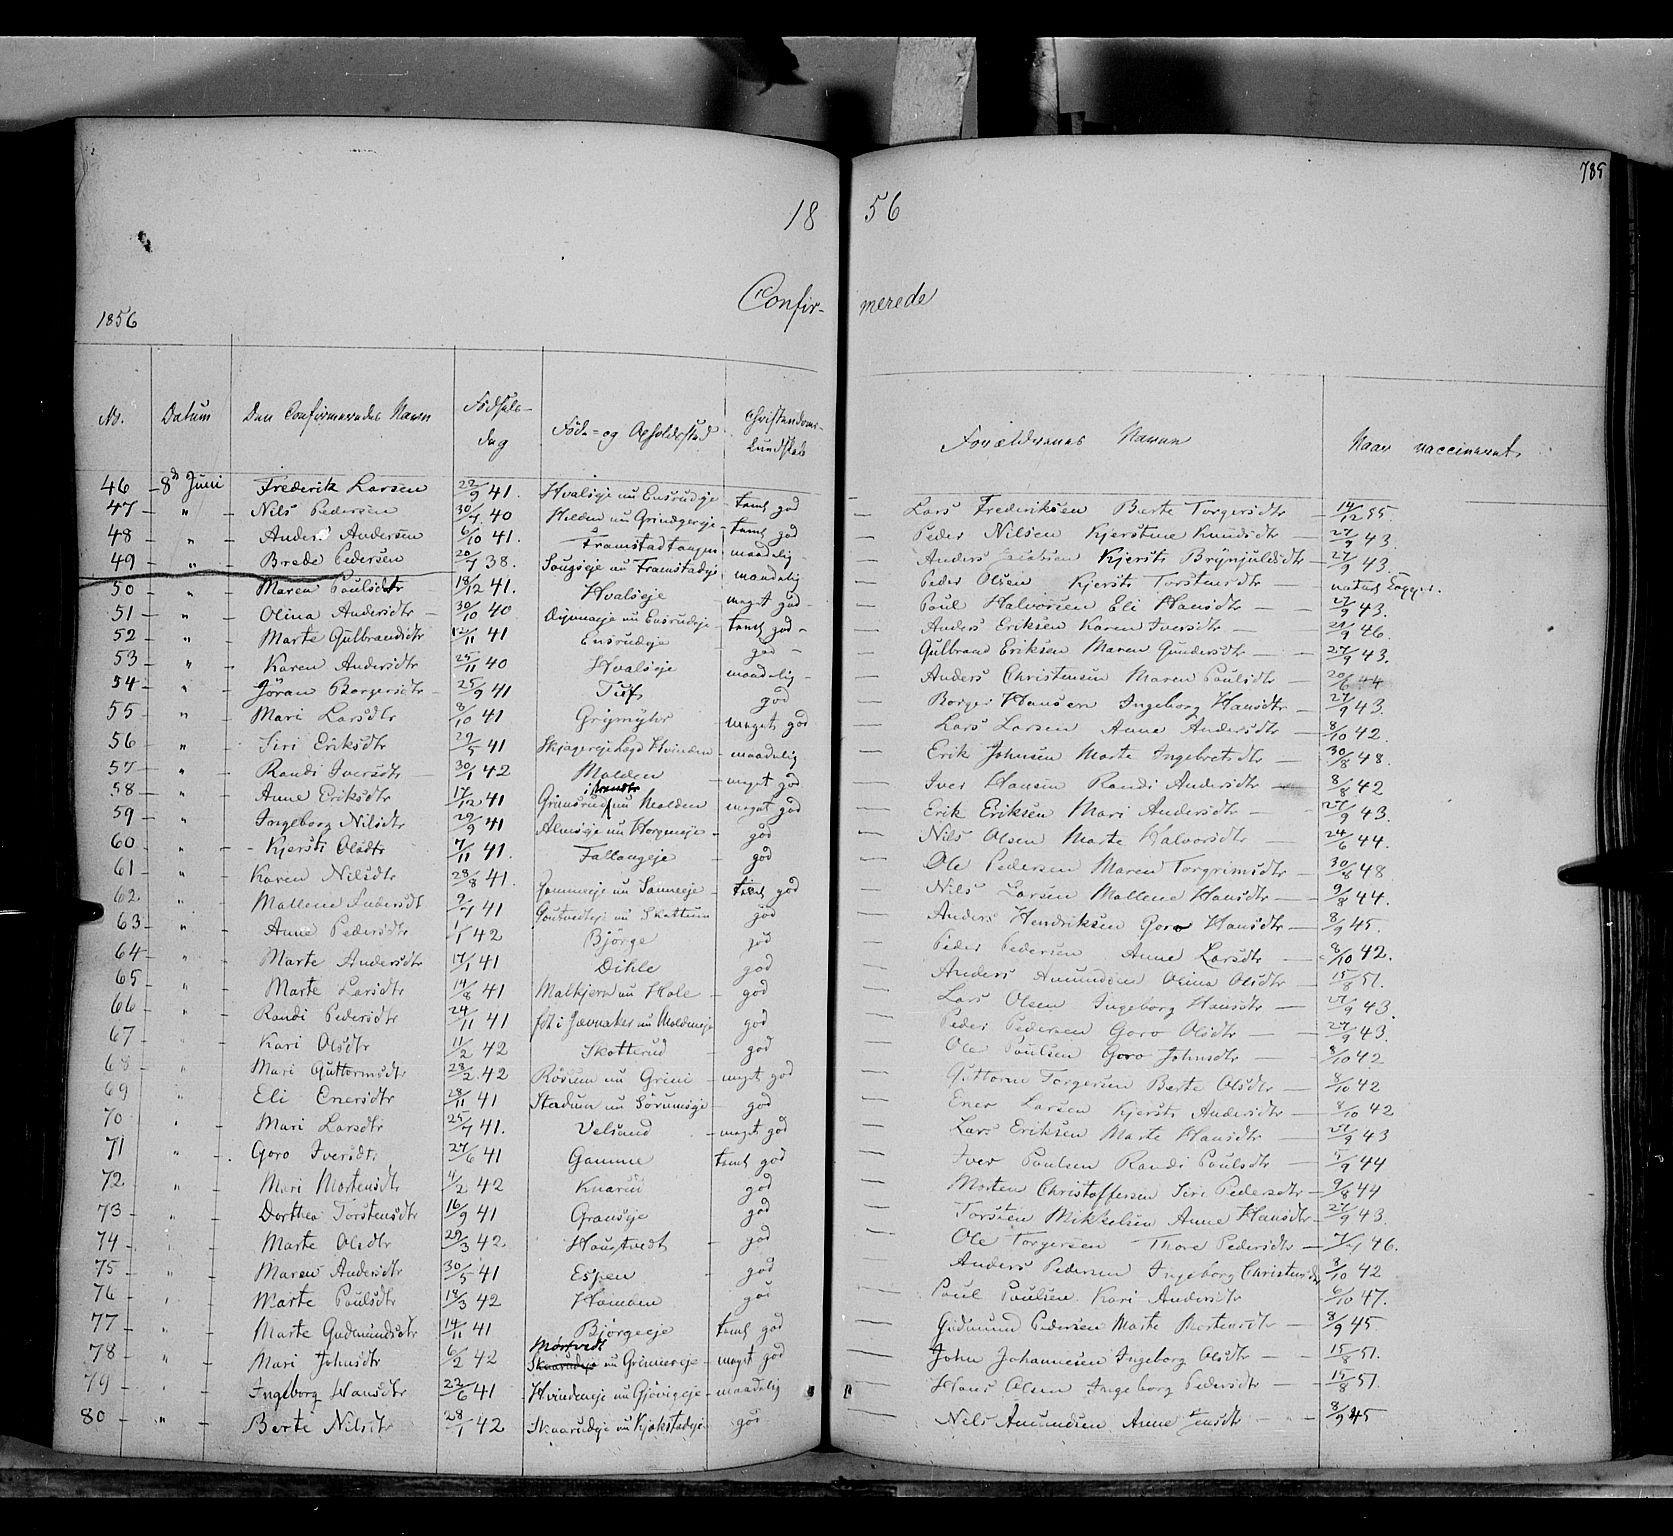 789
18 56
Confir- merede
1856
No. Datum Den Confirmeredes Navn Fødsels-dag Føde- og Opholdssted Christendoms-kundskab Forældrenes Navne Naar vaccineret
46 8de Juni Frederik Larsen 22/9 41. Hvalseje nu Ensrudeje temt god Lars Fredriksen Berte Torgersdtr 14/12 55.
47 " Nils Pedersen 30/7 40 Helden nu temt god Peder Nilsen Kjerstine Knudsdtr 27/9 43.
48 " Anders Andersen 6/10 41. Framstadtangen maadelig Anders Jacobsen Kjersti Brynjuldsdtr 27/9 43.
49 " Brede Pedersen 20/7 38. nu Framstadeje maadelig Peder Olsen Kjersti Torstensdtr naturl. Kopper.
50 " Maren Paulsdtr 18/12 41. Hvalseje meget god Paul Halvorsen Eli Hansdtr 27/9 43.
51 " Olina Andersdtr 30/10 40 nu Ensrudeje temt god Anders Eriksen Karen Iversdtr 46.
52 " Marte Gulbrandsdtr 12/11 41 Ensrudeje god Gulbrand Eriksen Maren Gundersdtr 27/9 43.
53 " Karen Andersdtr 25/11 40 Hvalseje maadelig Anders Christensen Maren Paulsdtr 20/6 44
54 " Jöran Borgersdtr 25/9 41 god Borger Hansen Ingeborg Hansdtr 27/9 43.
55 " Mari Larsdtr 8/10 41 Grymyhr meget god Lars Larsen Anne Andersdtr 8/10 42.
56 " Siri Eriksdtr 29/5 41 Hvinden maadelig Erik Johnsen Marte Ingebretsdtr 30/8 48.
57 " Randi Iversdtr 30/1 42 Molden meget god Iver Hansen Randi Andersdtr 8/8 42
58 " Anne Eriksdtr 17/12 41 Grinsrud i Brandbu nu Molden meget god Erik Eriksen Mari Andersdtr 27/9 43.
59 " Ingeborg Nilsdtr 29/9 41 Almseje nu god Nils Olsen Marte Halvorsdtr 24/6 44.
60 " Kjersti Olsdtr 7/11 41. Fallangeje god Ole Pedersen Maren Torgrimsdtr 30/8 48
61 " Karen Nilsdtr 28/8 41. nu Sanneeje temt god Nils Larsen Mallene Hansdtr 9/8 44.
62 " Mallene 9/7 41 nu Skattum god Anders Hendriksen Goro Hansdtr 8/9 45.
63 " Anne Pedersdtr 1/1 42 Björge god Peder Pedersen Anne Larsdtr 8/10 42.
64 " Marte Andersdtr 17/1 41 Dihle god Anders Amundsen Olina Olsdtr 15/8 51.
65 " Marte Larsdtr 14/8 41 Malkjern nu Hole god Lars Olsen Ingeborg Hansdtr 27/9 43.
66 " Randi Pedersdtr 24/11 41 født i Jævnaker nu Moldeneje god Peder Pedersen Goro Olsdtr 27/9 43.
67 " Kari Olsdtr 11/2 42 Skotterud god Ole Paulsen Goro Johnsdtr 8/10 42
68 " Mari Guttormsdtr 28/2 42 Rosum nu Grini meget god Guttorm Torgersen Berte Olsdtr 8/10 42
69 " Eli Enersdtr 28/11 41 Stadum nu Sörumseje god Ener Larsen Kjersti Andersdtr 8/10 42
70 " Mari Larsdtr 25/7 41. Velsand meget god Lars Eriksen Marte Hansdtr 27/9 43
71 " Goro Iversdtr 27/6 41 Gamme temt god Iver Paulsen Randi Paulsdtr 5/9 44
72 " Mari Mortensdtr 4/2 42 Knarud god Morten Christoffersen Siri Pedersdtr 9/8 44
73 " Dorthea Torstensdtr 16/9 41 Granseje god Torsten Mikkelsen Anne Hansdtr 27/9 43.
74 " Marte Olsdtr 29/3 42 Haugtvedt god Ole Torgersen Thore Pedersdtr 46.
75 " Maren Andersdtr 30/5 41 Espen god Anders Pedersen Ingeborg Christensdtr 8/10 42
76 " Marte Paulsdtr 18/3 42 Homben god Paul Paulsen Kari Andersdtr 6/10 47.
77 " Marte Gudmundsdtr 14/11 41 Björgeeje temt god Gudmund Pedersen Marte Mortensdtr 8/9 45.
78 " Mari Johnsdtr 6/2 42 Morstvedt Skaarudeje nu Grinieeje meget god John Johannesen Ingeborg Olsdtr 15/8 51.
79 " Ingeborg Hansdtr 22/6 41 Hvindeneje nu Gjövigeje maadelig Hans Olsen Ingeborg Pedersdtr 15/8 51.
80 " Berte Nilsdtr 28/1 42 Skaarudeje nu Kjokstadeje god Nils Amundsen Anne Jensdtr 8/9 45